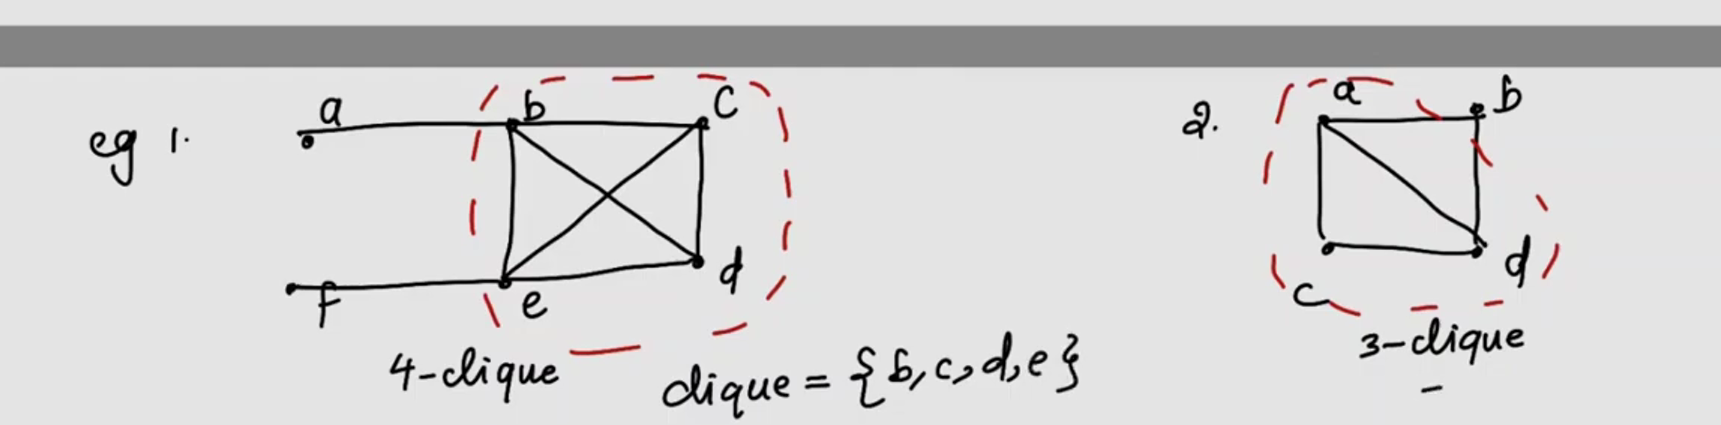 eg 1.
a b c
f e d
4-clique
clique = {b,c,d,e}
2.
a b
c d
3-clique